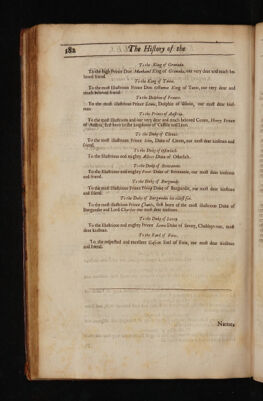 182 The History of the
To the King of Granada.
To the high Prince Don Mechamed King of Granada, our very dear and much be-
loved friend.
To the King of Tunis.
To the most illustrious Prince Don King of Tunis, our very dear and
much beloved friend.
To the Dolphin of France.
To the most illustrious Prince Lewis, Dolphin of Vienne, our most dear kins-
man.
To the Prince of Austria.
To the most illustrious and our very dear and much beloved Cousin, Henry Prince
of Austria, first born to the kingdomes of Castile and Leon.
To the Duke of Cleves.
To the most illustrious Prince John, Duke of Cleves, our most dear kinsman and
friend.
To the Duke of
To the illustrious and mighty Duke of
To the Duke of Britannie.
To the illustrious and mighty Duke of Britannie, our most dear kinsman
and friend.
To the Duke of Burgundie.
To the most illustrious Prince Philip Duke of Burgundie, our most dear kinsman
and friend.
To the Duke of Burgundie his eldest son.
To the most illustrious Prince Charls, first born of the most illustrious Duke of
Burgundie and Lord Charlois our most dear kinsman.
To the Duke of Savoy.
To the illustrious and mighty Prince Lewis Duke of Savoy, our most
dear kinsman.
To the Earl of Foix.
To the respected and excellent Gaston Earl of Foix, our most dear kinsman
and friend.